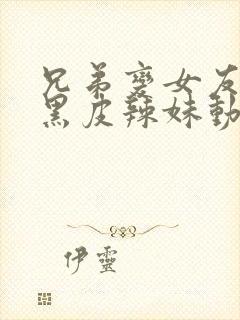 兄弟變女友
黑皮辣妹動
伊靈